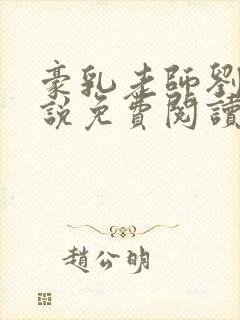 豪乳老師劉
說免費閱讀
趙公明